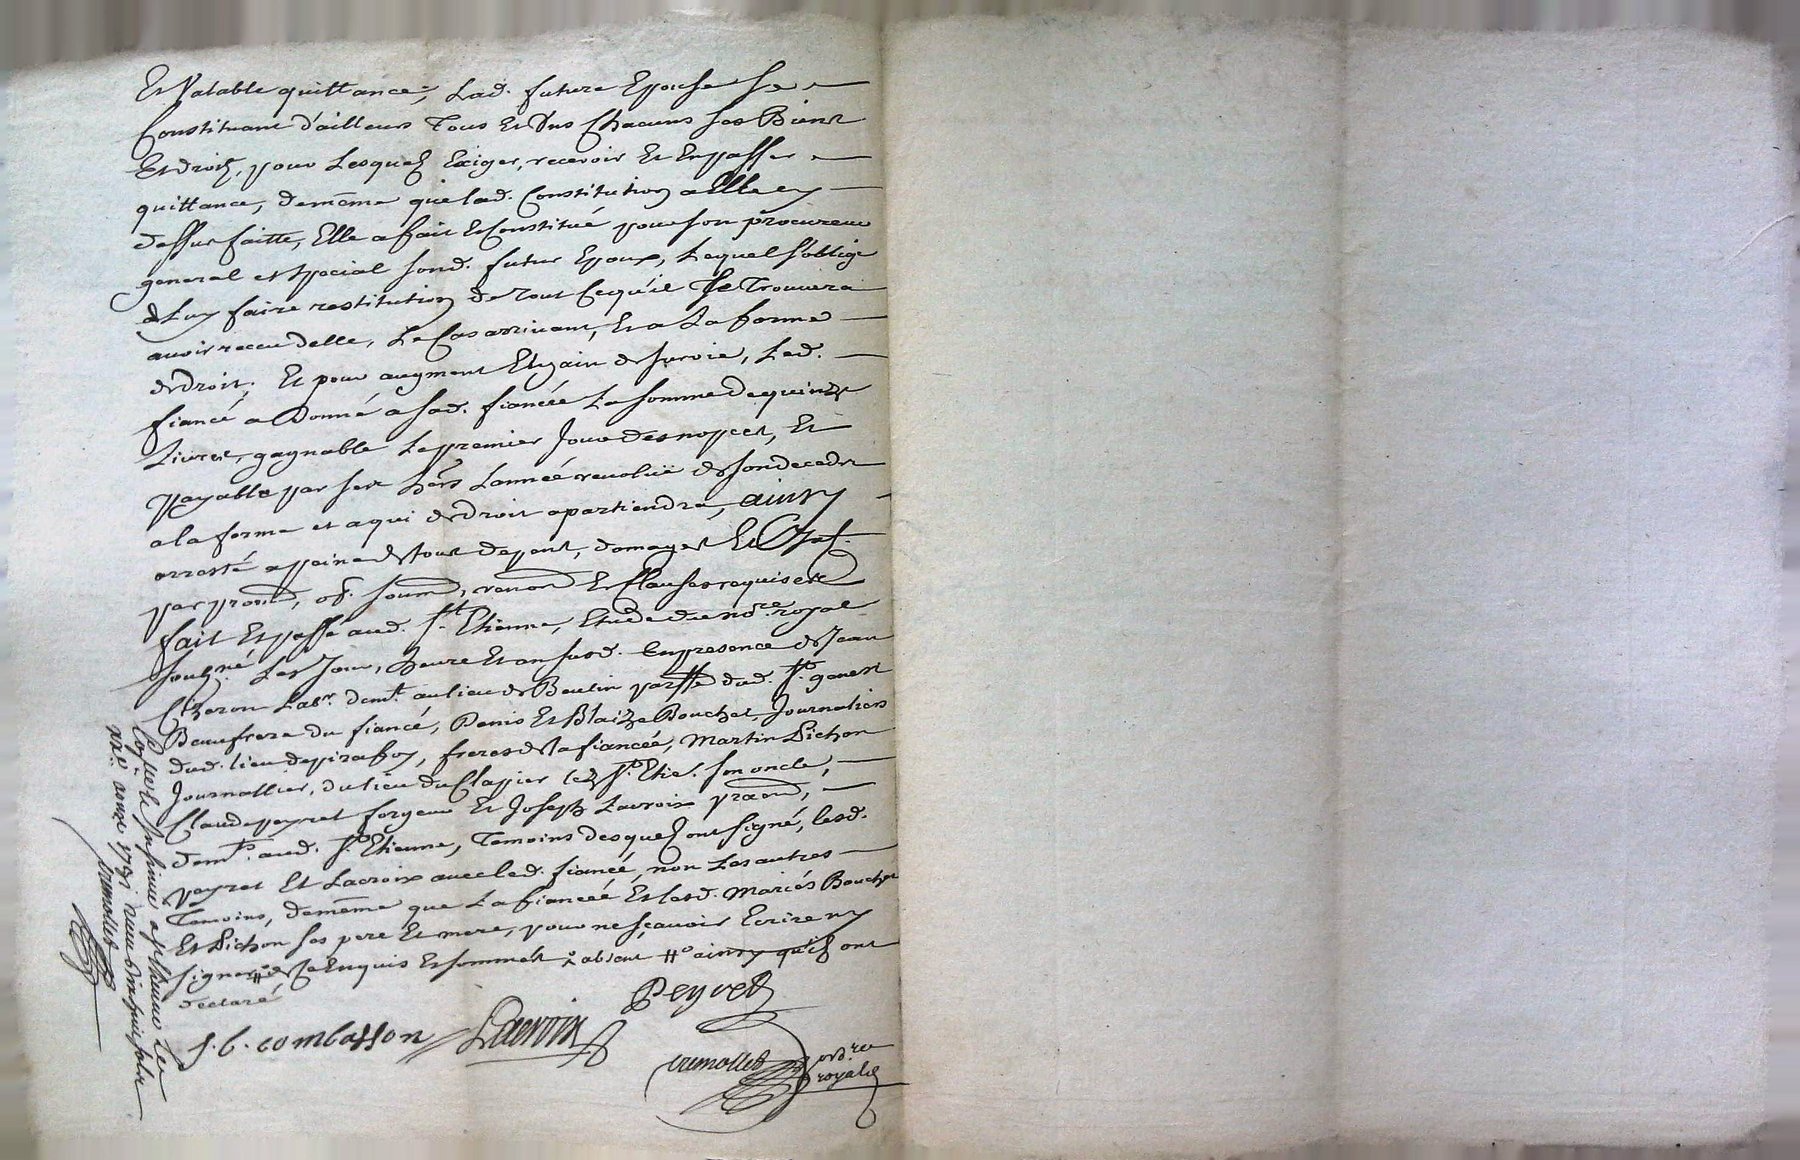 Et Valable quittance; Lad. future Epouse Se
Constituant d'ailleurs Tous Et Uns Chacuns Ses Biens
Et droitz, pour Lesquelz Exiger, recevoir Et En passer
quittance, de meme que lad. Constitution a Elle cy
dessus faitte, Elle a fait Et Constitué pour Son procureur
general et special Sond. futur Epoux, Lequel S'oblige
de Luy faire restitution de Tout Ce qu'il Se Trouvera
avoir receu d'elle, Le Cas arrivant, Et a La forme
de droit; Et pour augment Et gain de Survie, Led.
fiancé a Donné a Sad. fiancée La Somme de quinze
Livres, gagnable Le premier Jour des nopces, Et
payable par Ses hers L'année revoluë de Son decedz
a la forme et a qui de droit apartiendra, ainsy
arresté a peine de tout depens, domages Et
par prom, ob. Soum, renon Et Clauses requises
fait Et passé aud. St. Etienne, Etude du nore. royal
Soubzné. Les Jour, heure Et an Susd. En presence de Jean
Labr. demt. au lieu de Beulin parsse dud. St. genest
Beaufrere du fiancé, Denis Et Blaize Bouchet Journaliers
dud. lieu de, freres de La fiancée, Martin Pichon
Journallier, du lieu du Clapier led. St. Etie. Son oncle,
Claude peyret forgeur Et Joseph Lacroix praon,
demts. aud. St. Etienne, Temoins desquelz ont Signé, lesd.
peyret Et Lacroix avec led. fiancé, non Les autres
Temoins, de meme que La fiancée Et lesd. Mariés Bouchet
Et Pichon Ses pere Et mere, pour ne Sçavoir Ecrire ny
Signer de Ce Enquis Et Sommés absent ainsy qu'ilz ont
declaré
Peyret
J. B. combasson Lacroix
nore
royal
Controlle Insinue a St Etienne Le
aoust 1731 receu dix huit solz